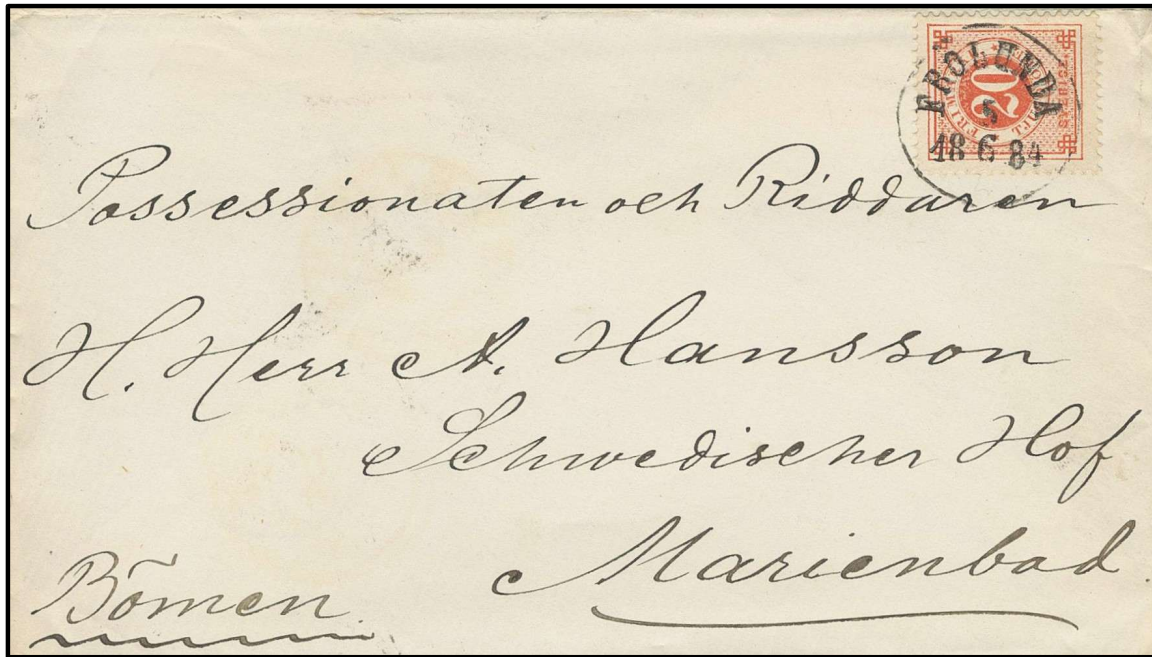 FRÖLUNDA
18 6 84
20
Possessionaten och Riddaren
H. Herr A. Hansson
Schwedischer Hof
Marienbad.
Bömen